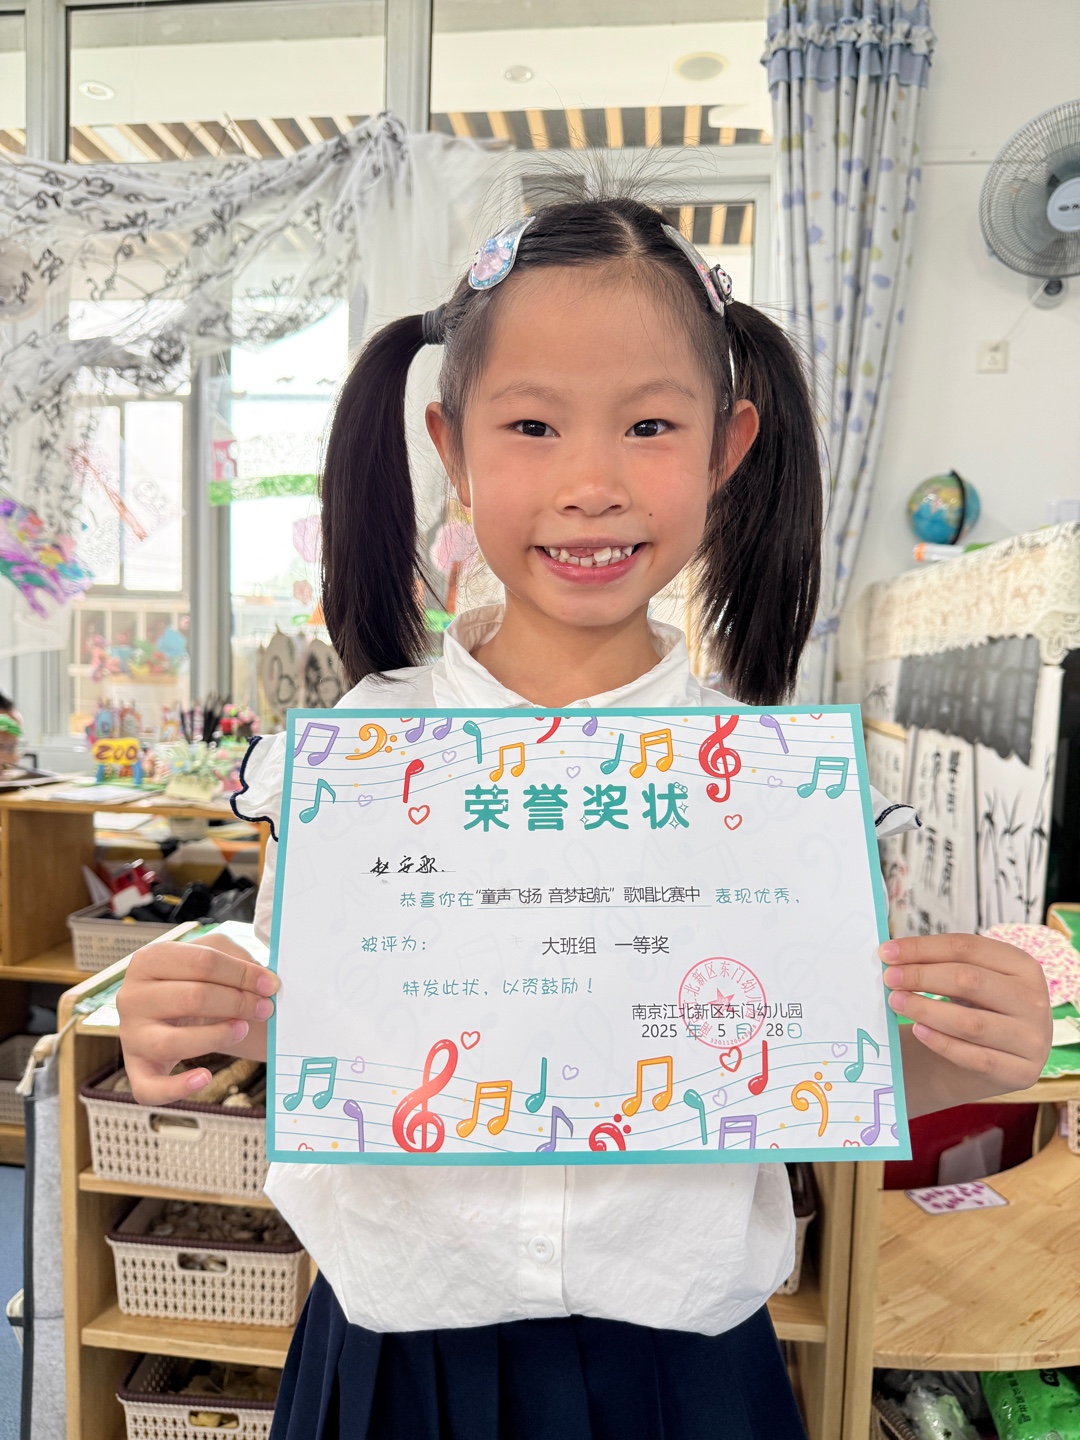 ZOO
荣誉奖状
赵安歌
恭喜你在“童声飞扬 音梦起航”歌唱比赛中 表现优秀,
被评为: 大班组 一等奖
特发此状, 以资鼓励!
南京江北新区东门幼儿园
2025 年 5 月 28日